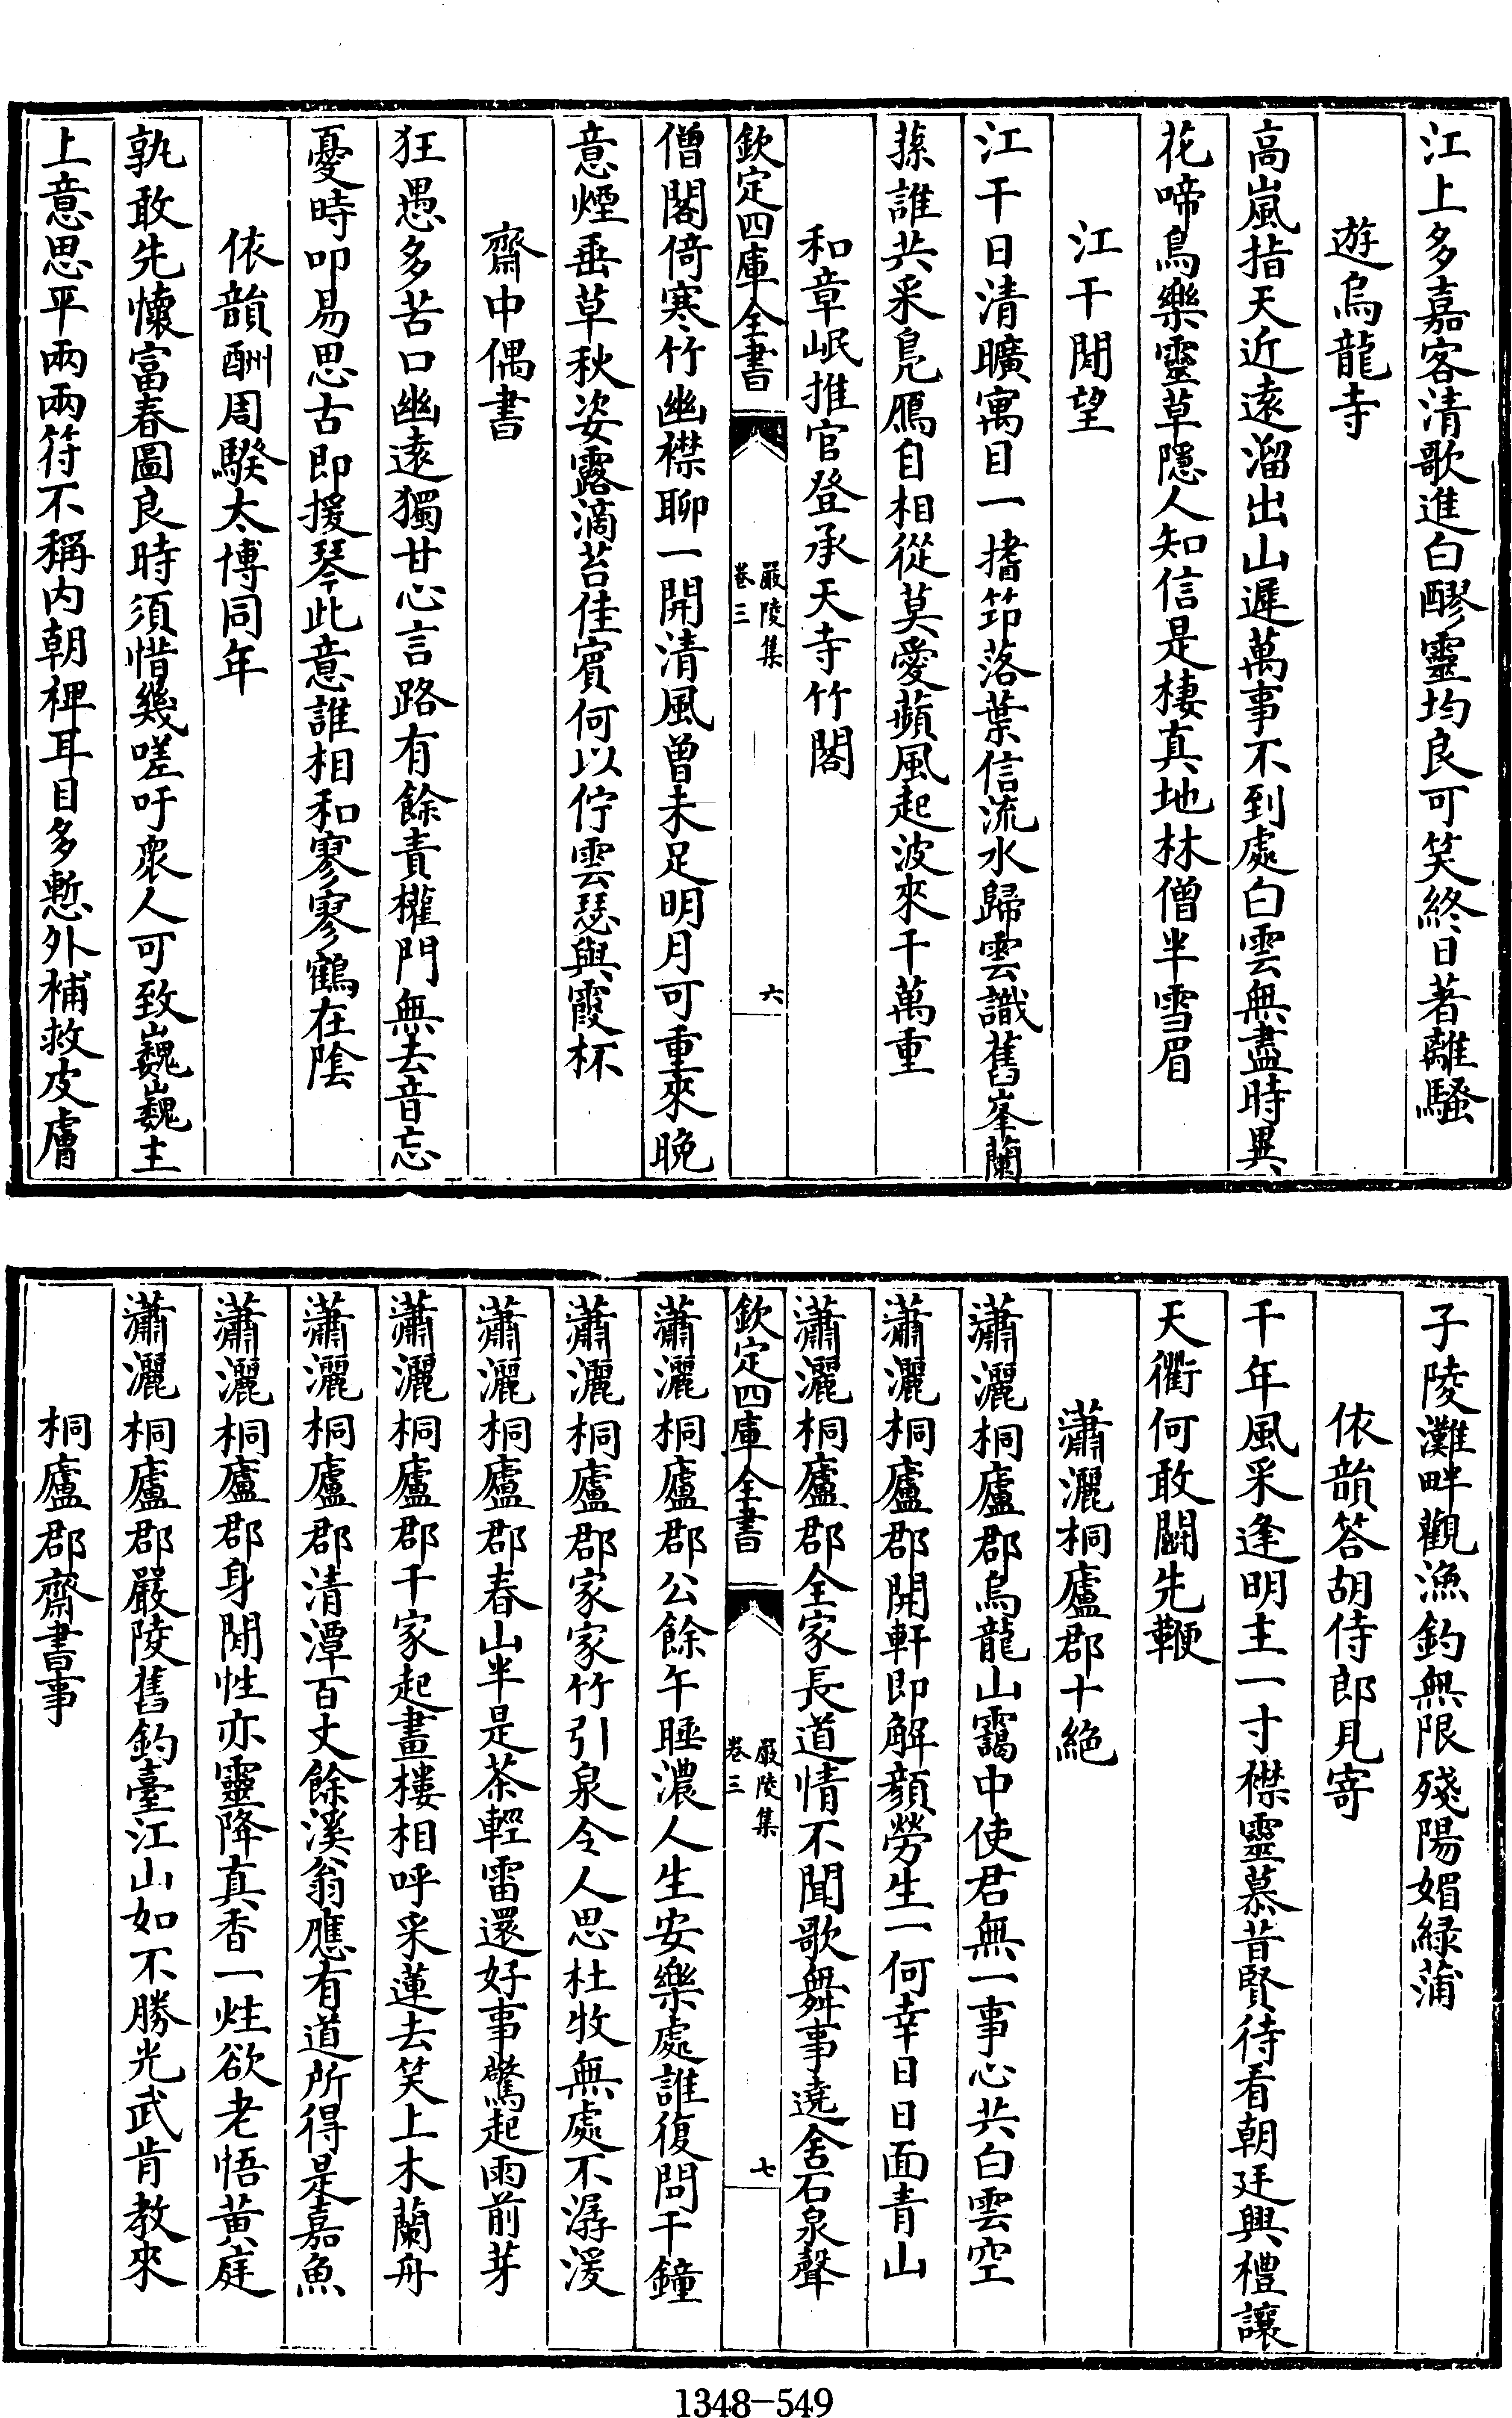 江上多嘉客清歌進白醪靈均良可笑終日著離騷
遊烏龍寺
高嵐指天近遠溜出山遲萬事不到處白雲無盡時異
花啼鳥樂靈草隱人知信是棲真地林僧半雪眉
江干閒望
江干日清曠寓目一搘笻落葉信流水歸雲識舊峯蘭
蓀誰共采鳬鴈自相從莫愛蘋風起波來千萬重
和章岷推官登承天寺竹閣
欽定四庫全書
嚴陵集
卷三
六
僧閣倚寒竹幽襟聊一開清風曾未足明月可重來晚
意煙垂草秋姿露滴苔佳賓何以佇雲瑟與霞杯
齋中偶書
狂愚多苦口幽遠獨甘心言路有餘責權門無去音忘
憂時叩易思古即援琴此意誰相和寥寥鶴在陰
依韻酬周騤太博同年
孰敢先懷富春圖良時須惜幾嗟吁衆人可致巍巍主
上意思平兩兩符不稱內朝裨耳目多慙外補救皮膚
子陵灘畔觀漁釣無限殘陽媚緑蒲
依韻答胡侍郎見寄
千年風采逢明主一寸襟靈慕昔賢待看朝廷興禮讓
天衢何敢鬭先鞭
瀟灑桐廬郡十絶
瀟灑桐廬郡烏龍山靄中使君無一事心共白雲空
瀟灑桐廬郡開軒即解顏勞生一何幸日日面青山
瀟灑桐廬郡全家長道情不聞歌舞事遶舍石泉聲
欽定四庫全書
嚴陵集
卷三
七
瀟灑桐廬郡公餘午睡濃人生安樂處誰復問千鐘
瀟灑桐廬郡家家竹引泉令人思杜牧無處不潺湲
瀟灑桐廬郡春山半是茶輕雷還好事驚起雨前芽
瀟灑桐廬郡千家起畫樓相呼采蓮去笑上木蘭舟
瀟灑桐廬郡清潭百丈餘溪翁應有道所得是嘉魚
瀟灑桐廬郡身閒性亦靈降真香一炷欲老悟黃庭
瀟灑桐廬郡嚴陵舊釣臺江山如不勝光武肯教來
桐廬郡齋書事
1348-549